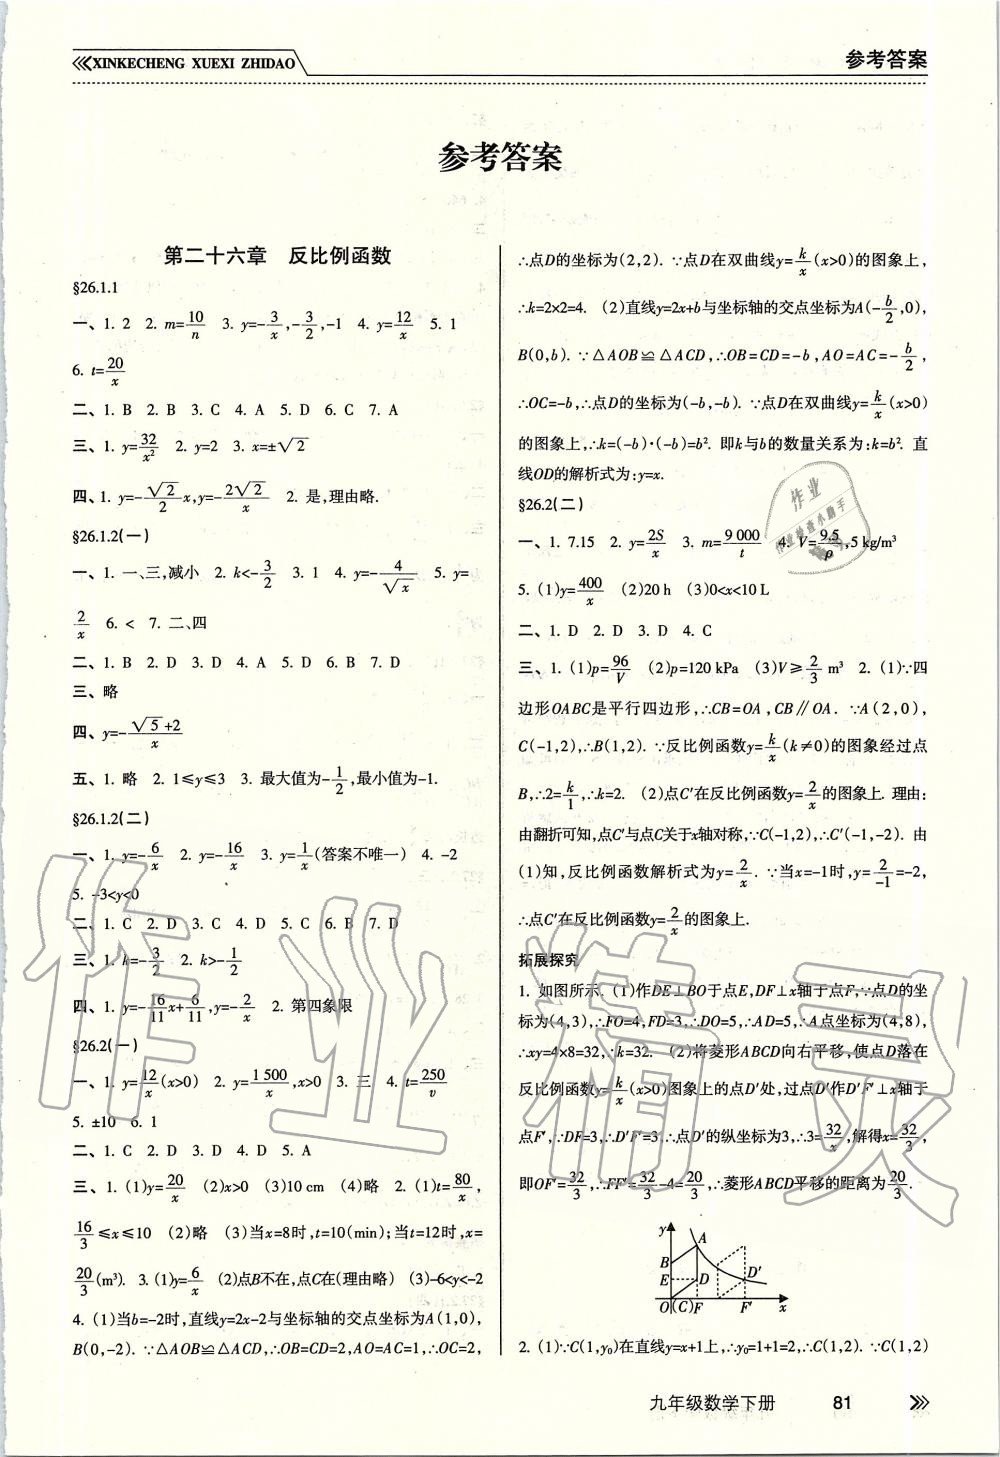 XINKECHENG XUEXI ZHIDAO
参考答案
参考答案
第二十六章 反比例函数
§26.1.1
一、1. 2 2. m=10/n 3. y=-3/x,-3/2,-1 4. y=12/x 5. 1
6. t=20/x
二、1. B 2. B 3. C 4. A 5. D 6. C 7. A
三、1. y=32/x² 2. y=2 3. x=±√2
四、1. y=-√2/2x,y=-2√2/x 2. 是,理由略.
§26.1.2(一)
一、1. 一、三,减小 2. k<-3/2 3. 1 4. y=-4/√x 5. y=
2/x 6. < 7. 二、四
二、1. B 2. D 3. D 4. A 5. D 6. B 7. D
三、略
四、y=-√5+2/x
五、1. 略 2. 1≤y≤3 3. 最大值为-1/2,最小值为-1.
§26.1.2(二)
一、1. y=-6/x 2. y=-16/x 3. y=1/x(答案不唯一) 4. -2
5. -3<y<0
二、1. C 2. D 3. C 4. D 5. C 6. B 7. D
三、1. k=-3/2 2. k>-1/2
四、1. y=-16/11x+6/11,y=-2/x 2. 第四象限
§26.2(一)
一、1. y=12/x(x>0) 2. y=1 500/x,x>0 3. 三 4. t=250/v
5. ±10 6. 1
二、1. C 2. D 3. D 4. D 5. A
三、1. (1)y=20/x (2)x>0 (3)10 cm (4)略 2. (1)t=80/x,
16/3≤x≤10 (2)略 (3)当x=8时,t=10(min);当t=12时,x=
20/3(m³). 3. (1)y=6/x (2)点B不在,点C在(理由略) (3)-6<y<-2
4. (1)当b=-2时,直线y=2x-2与坐标轴的交点坐标为A(1,0),
B(0,-2). ∵△AOB≌△ACD,∴OB=CD=2,AO=AC=1,∴OC=2,
∴点D的坐标为(2,2). ∵点D在双曲线y=k/x(x>0)的图象上,
∴k=2×2=4. (2)直线y=2x+b与坐标轴的交点坐标为A(-b/2,0),
B(0,b). ∵△AOB≌△ACD,∴OB=CD=-b,AO=AC=-b/2,
∴OC=-b,∴点D的坐标为(-b,-b). ∵点D在双曲线y=k/x(x>0)
的图象上,∴k=(-b)·(-b)=b². 即k与b的数量关系为:k=b². 直
线OD的解析式为:y=x.
§26.2(二)
一、1. 7.15 2. y=2S/x 3. m=9 000/t 4. V=9.5/ρ,5 kg/m³
5. (1)y=400/x (2)20 h (3)0<x<10 L
二、1. D 2. D 3. D 4. C
三、1. (1)p=96/V (2)p=120 kPa (3)V≥2/3 m³ 2. (1)∵四
边形OABC是平行四边形,∴CB=OA,CB∥OA. ∵A(2,0),
C(-1,2),∴B(1,2). ∵反比例函数y=k/x(k≠0)的图象经过点
B,∴2=k/1,∴k=2. (2)点C′在反比例函数y=2/x的图象上. 理由:
由翻折可知,点C′与点C关于x轴对称,∵C(-1,2),∴C′(-1,-2). 由
(1)知,反比例函数解析式为y=2/x. ∵当x=-1时,y=2/-1=-2,
∴点C′在反比例函数y=2/x的图象上.
拓展探究
1. 如图所示. (1)作DE⊥BO于点E,DF⊥x轴于点F,∵点D的坐
标为(4,3),∴FO=4,FD=3,∴DO=5,∴AD=5,∴A点坐标为(4,8),
∴xy=4×8=32,∴k=32. (2)将菱形ABCD向右平移,使点D落在
反比例函数y=k/x(x>0)图象上的点D′处,过点D′作D′F′⊥x轴于
点F′,∵DF=3,∴D′F′=3.∴点D′的纵坐标为3,∴3=32/x,解得x=32/3,
即OF′=32/3,∴FF′=32/3-4=20/3,∴菱形ABCD平移的距离为20/3.
y
A
B
E D D′
O(C)F F′ x
2. (1)∵C(1,y₀)在直线y=x+1上,∴y₀=1+1=2,∴C(1,2). ∵C(1,2)
九年级数学下册 81
作业
作业检查小助手
作业精灵